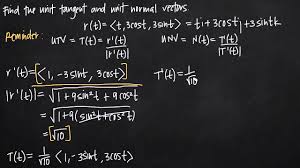 Find the unit tangent and unit normal vectors.
r(t) = ⟨t, 3cost, 3sint⟩ = ti + 3costj + 3sintk
Reminder: UTV = T(t) = r'(t) / |r'(t)| UNV = N(t) = T'(t) / |T'(t)|
r'(t) = ⟨1, -3sint, 3cost⟩
|r'(t)| = √(1 + 9sin²t + 9cos²t)
= √(1 + 9(sin²t + cos²t))
= √10
T(t) = 1/√10 ⟨1, -3sint, 3cost⟩
T'(t) = 1/√10